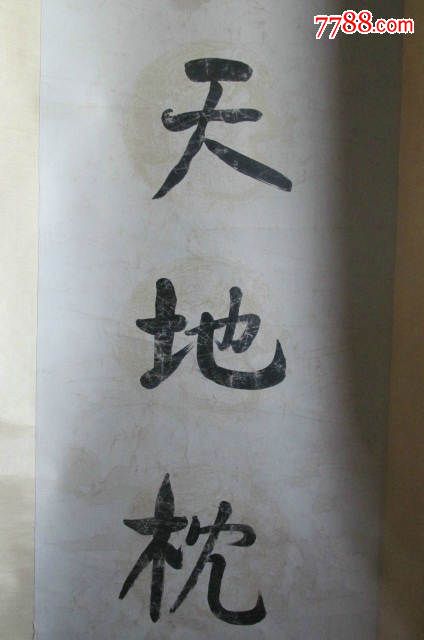 7788.com
天
地
枕